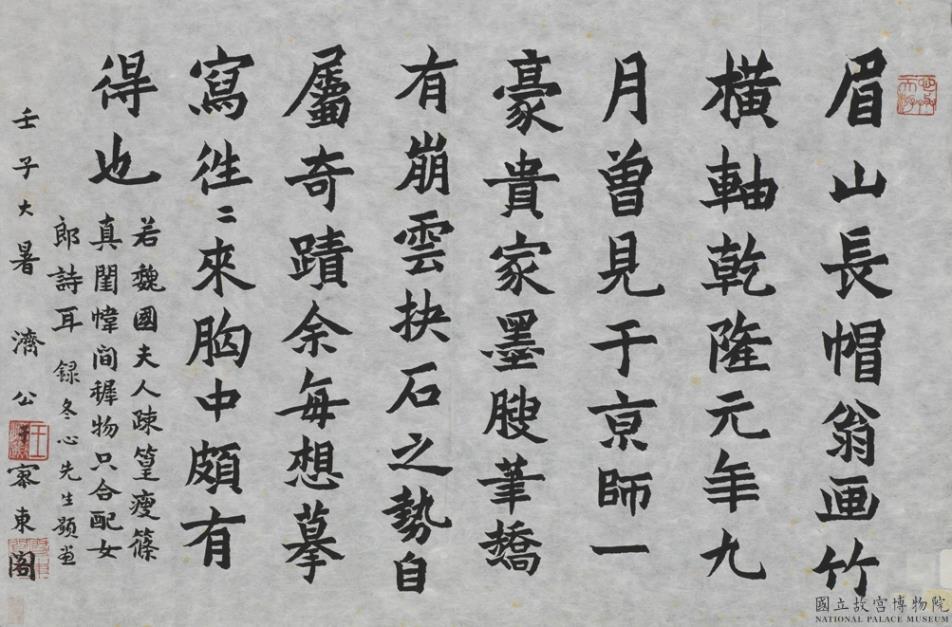 眉山長帽翁画竹
橫軸乾隆元年九
月曾見于亰師一
豪貴家墨膄筆矯
有崩雲抉石之勢自
屬奇蹟余每想摹
寫徃〻來胸中頗有
得也
若魏國夫人疎篁瘦篠
真閨幃间穉物只合配女
郎詩耳 録冬心先生題画
壬子大暑 濟公于東阁
國立故宮博物院
NATIONAL PALACE MUSEUM